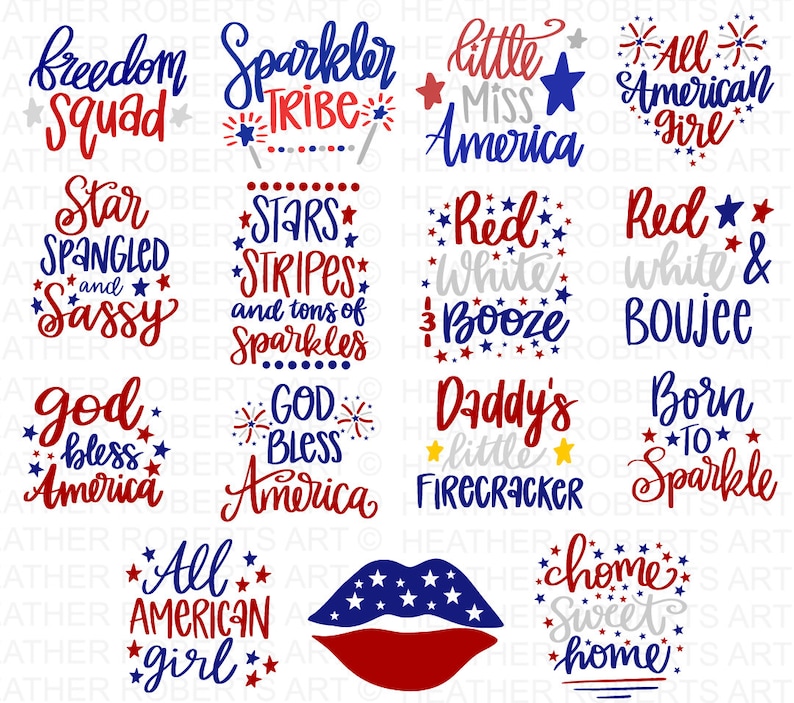 HEATHER ROBERTS ART ©
freedom
squad
Sparkler
TRIBE
little
MISS
America
All
American
girl
Star
SPANGLED
and
Sassy
STARS
STRIPES
and tons of
Sparkles
Red
White
& Booze
Red
white &
BOUJEE
god
bless
America
GOD
BLESS
America
Daddy's
little
FIRECRACKER
Born
TO
Sparkle
All
AMERICAN
girl
home
sweet
home